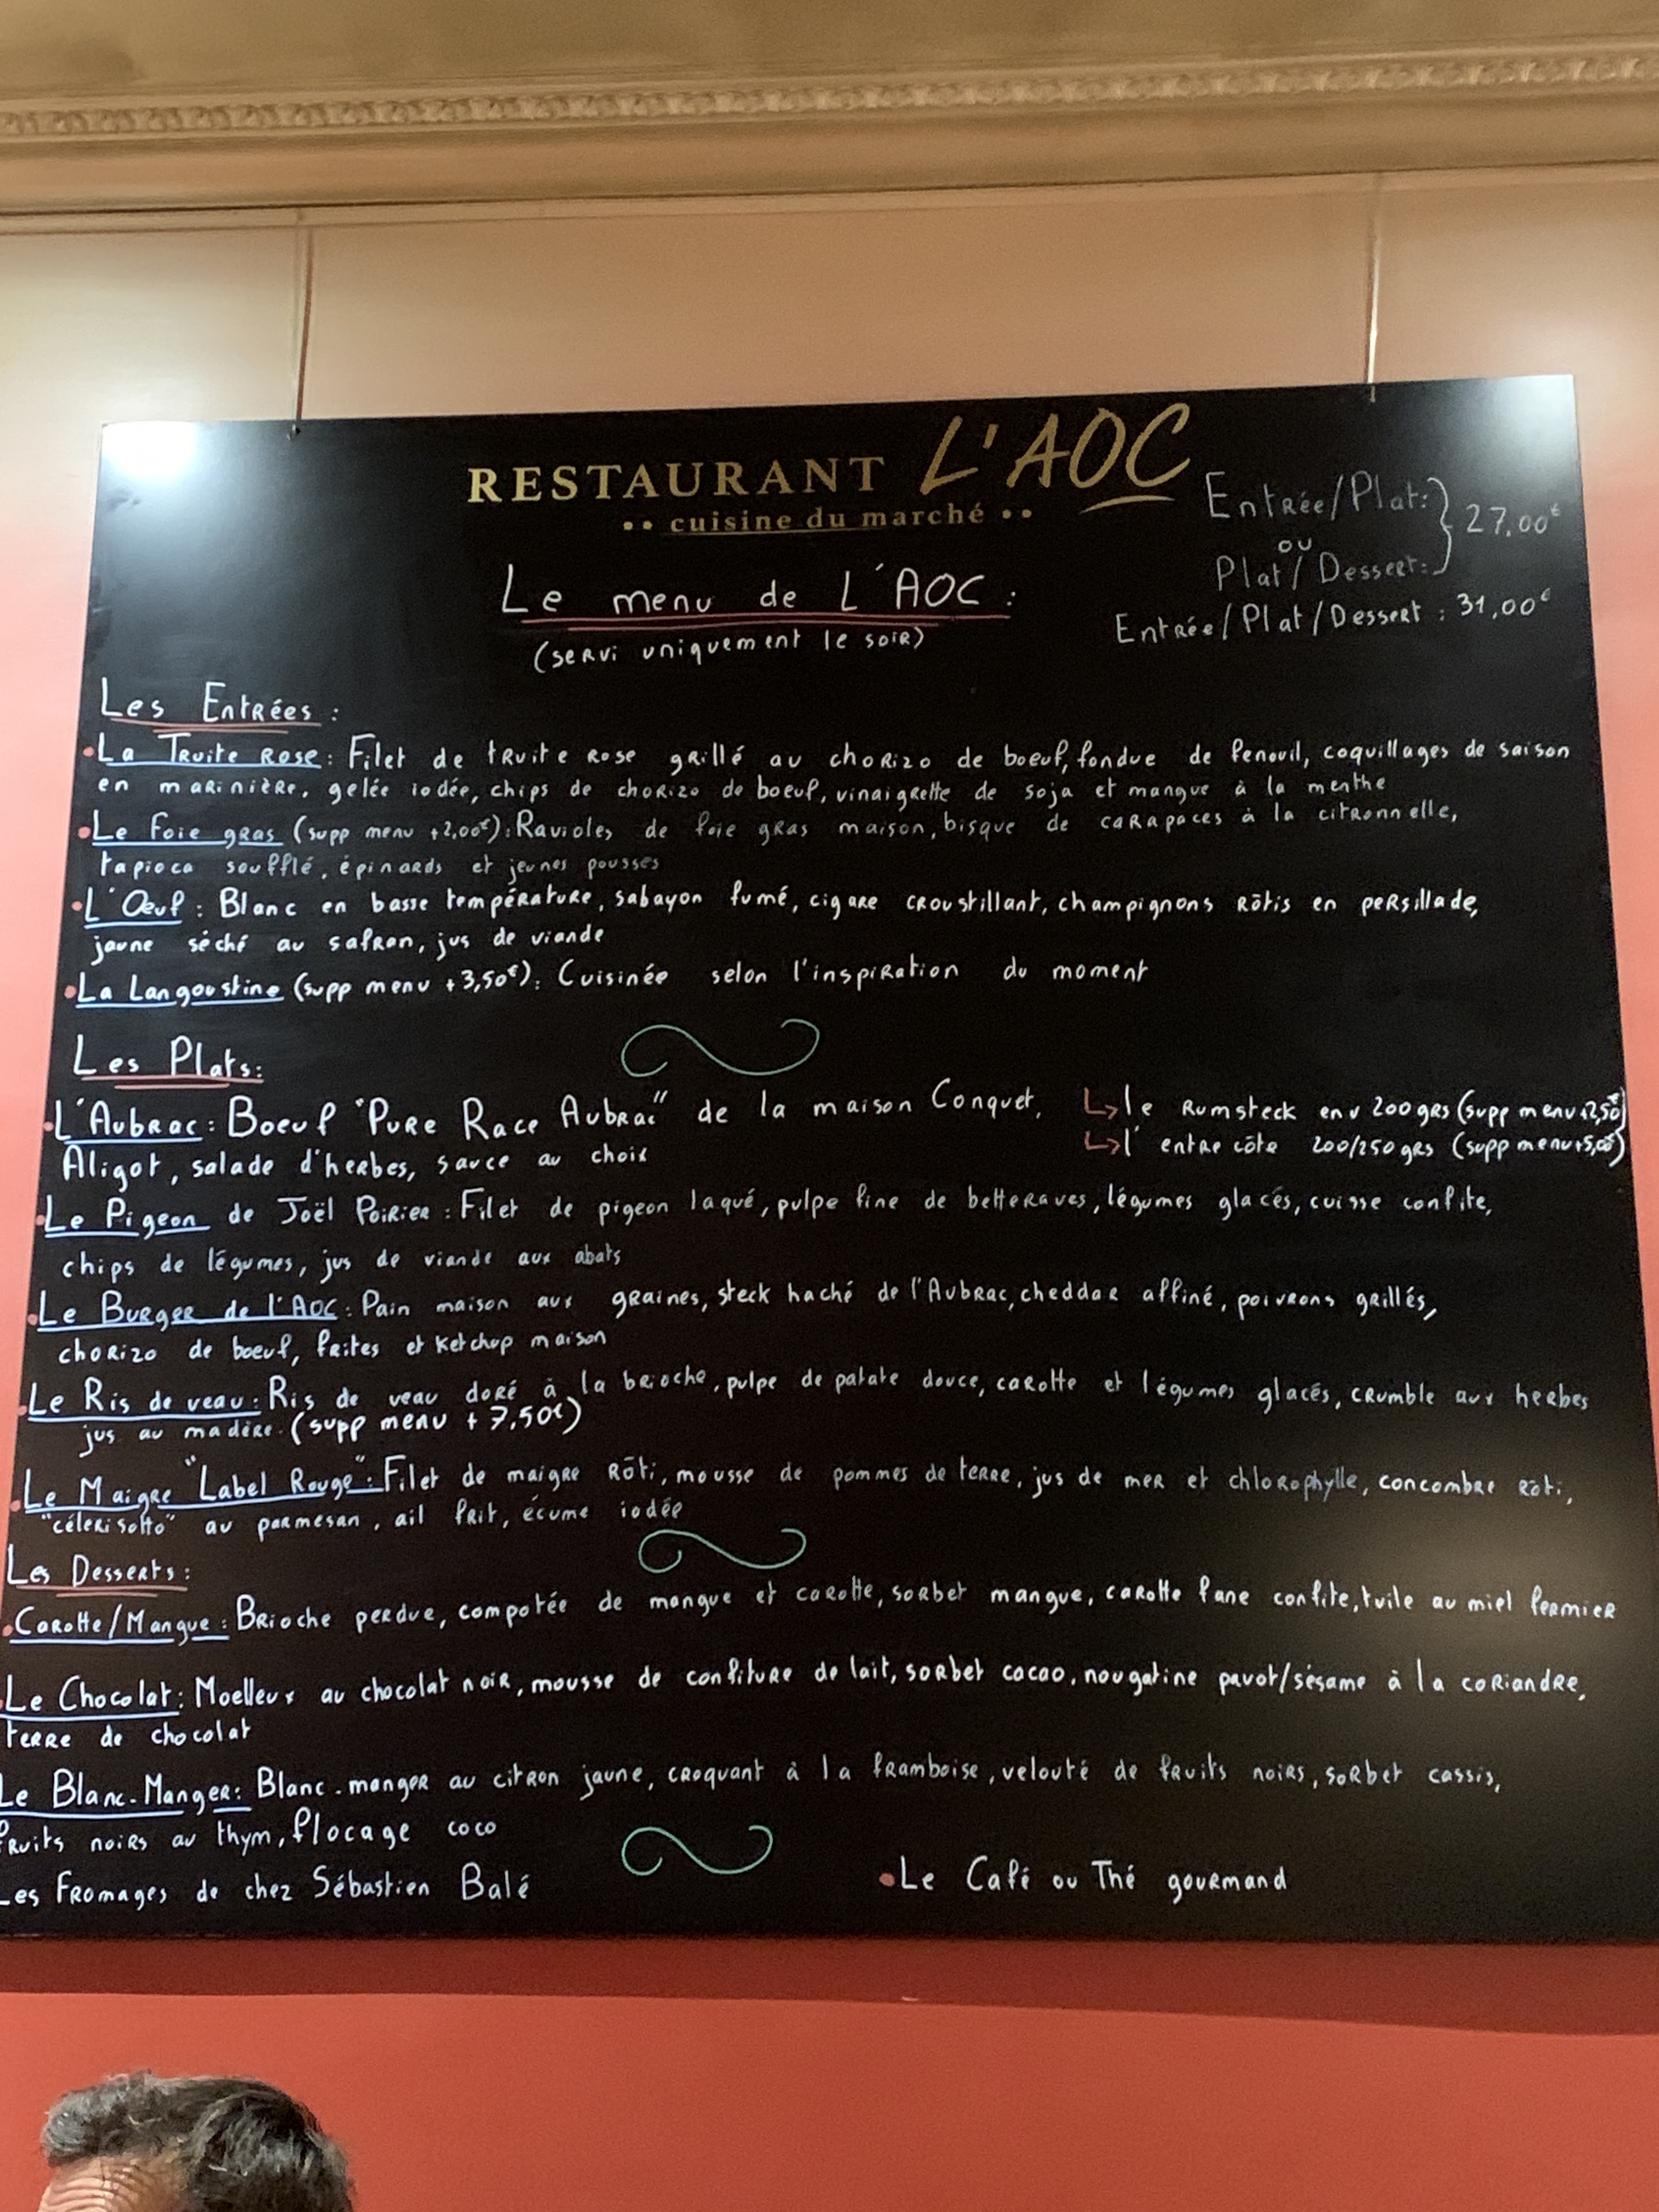 RESTAURANT L'AOC
•• cuisine du marché ••
Entrée/Plat:
ou
Plat/Dessert:
27,00€
Entrée/Plat/Dessert : 31,00€
Le menu de L'AOC :
(servi uniquement le soir)
Les Entrées :
• La Truite rose : Filet de truite rose grillé au chorizo de boeuf, fondue de fenouil, coquillages de saison
en marinière, gelée iodée, chips de chorizo de boeuf, vinaigrette de soja et mangue à la menthe
• Le Foie gras (supp menu +2,00€) : Ravioles de foie gras maison, bisque de carapaces à la citronnelle,
tapioca soufflé, épinards et jeunes pousses
• L'Œuf : Blanc en basse température, sabayon fumé, cigare croustillant, champignons rôtis en persillade,
jaune séché au safran, jus de viande
• La Langoustine (supp menu +3,50€) : Cuisinée selon l'inspiration du moment
Les Plats:
• L'Aubrac : Boeuf "Pure Race Aubrac" de la maison Conquet,
Aligot, salade d'herbes, sauce au choix
↳ le Rumsteck env 200grs (supp menu +2,50€)
↳ l'entre côte 200/250 grs (supp menu +5,00€)
• Le Pigeon de Joël Poirier : Filet de pigeon laqué, pulpe fine de betteraves, légumes glacés, cuisse confite,
chips de légumes, jus de viande aux abats
• Le Burger de l'AOC : Pain maison aux graines, steck haché de l'Aubrac, cheddar affiné, poivrons grillés,
chorizo de boeuf, frites et Ketchup maison
• Le Ris de veau : Ris de veau doré à la brioche, pulpe de patate douce, carotte et légumes glacés, crumble aux herbes
jus au madère. (supp menu + 7,50€)
• Le Maigre "Label Rouge" : Filet de maigre rôti, mousse de pommes de terre, jus de mer et chlorophylle, concombre rôti,
"célerisotto" au parmesan, ail frit, écume iodée
Les Desserts :
• Carotte/Mangue : Brioche perdue, compotée de mangue et carotte, sorbet mangue, carotte fane confite, tuile au miel fermier
Le Chocolat : Moelleux au chocolat noir, mousse de confiture de lait, sorbet cacao, nougatine pavot/sésame à la coriandre,
terre de chocolat
Le Blanc-Manger : Blanc-manger au citron jaune, croquant à la framboise, velouté de fruits noirs, sorbet cassis,
fruits noirs au thym, flocage coco
Les Fromages de chez Sébastien Balé
• Le Café ou Thé gourmand